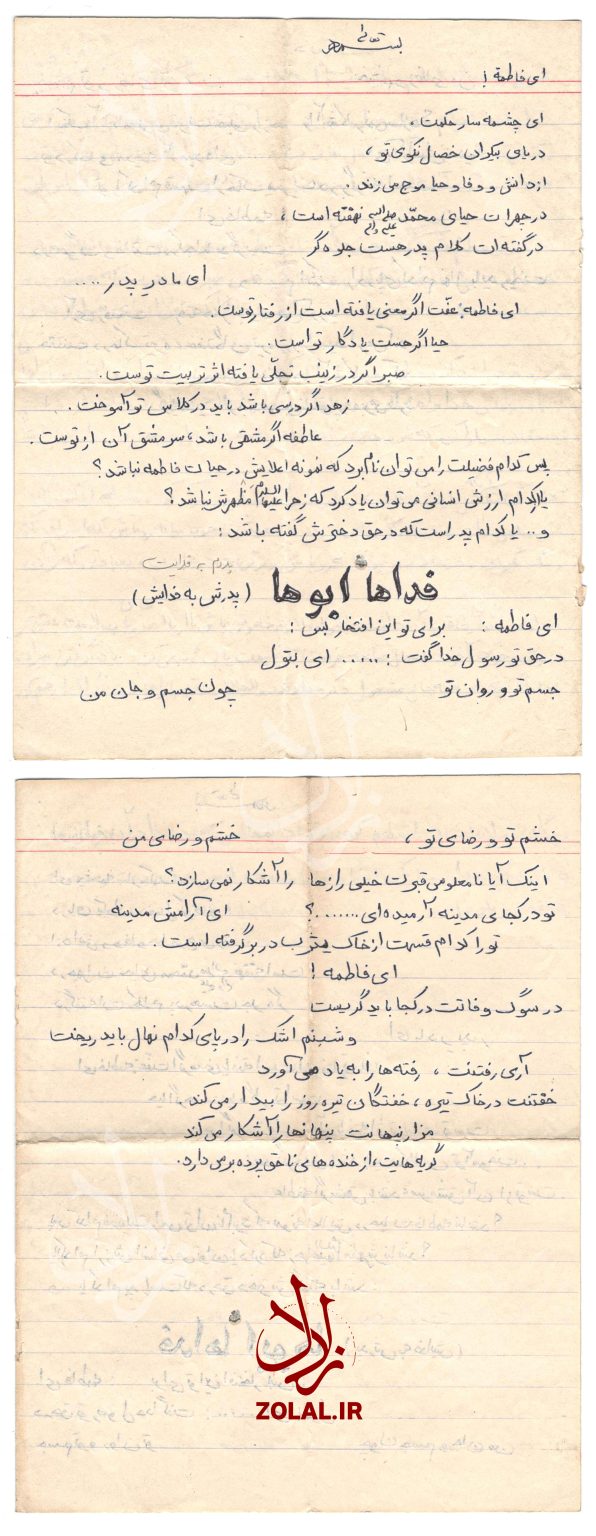 بسمه تعالی
ای فاطمه !
ای چشمه سار حکمت ،
دریای بیکران خصال نکوی تو ،
از دانش و وفا و حیا موج می زند .
در چهرات حیای محمّد صلی الله علیه و آله نهفته است ،
در گفته ات کلام پدر هست جلوه گر
ای مادر پدر .....
ای فاطمه: عفّت اگر معنی یافته است از رفتار توست.
حیا اگر هست یادگار تو است.
صبر اگر در زینب تجلّی یافته اثر تربیت توست.
زهد اگر درسی باشد باید در کلاس تو آموخت .
عاطفه اگر مشقی باشد، سرمشق آن از توست.
پس کدام فضیلت را می توان نام برد که نمونه اعلایش در حیات فاطمه نباشد ؟
یا کدام ارزش انسانی می توان یاد کرد که زهرا علیها السلام مظهرش نباشد ؟
و .. یا کدام پدر است که در حق دخترش گفته باشد :
پدرم به فدایت
فداها ابوها ( پدرش به فدایش )
ای فاطمه : برای تو این افتخار بس :
در حق تو رسول خدا گفت : ...... ای بتول
جسم تو و روان تو چون جسم و جان من
خشم تو و رضای تو ، خشم و رضای من
اینک آیا نامعلومی قبرت خیلی رازها را آشکار نمی سازد ؟
تو در کجای مدینه آرمیده ای .......؟ ای آرامش مدینه
تو را کدام قسمت از خاک یثرب در بر گرفته است .
ای فاطمه !
در سوگ وفاتت در کجا باید گریست
و شبنم اشک را در پای کدام نهال باید ریخت
آری رفتنت ، رفته ها را به یاد می آورد
خفتنت در خاک تیره ، خفتگان تیره روز را بیدار می کند
مزار نهانت پنهانها را آشکار می کند
گریه هایت، از خنده های ناحق پرده بر می دارد.
زلال
ZOLAL.IR